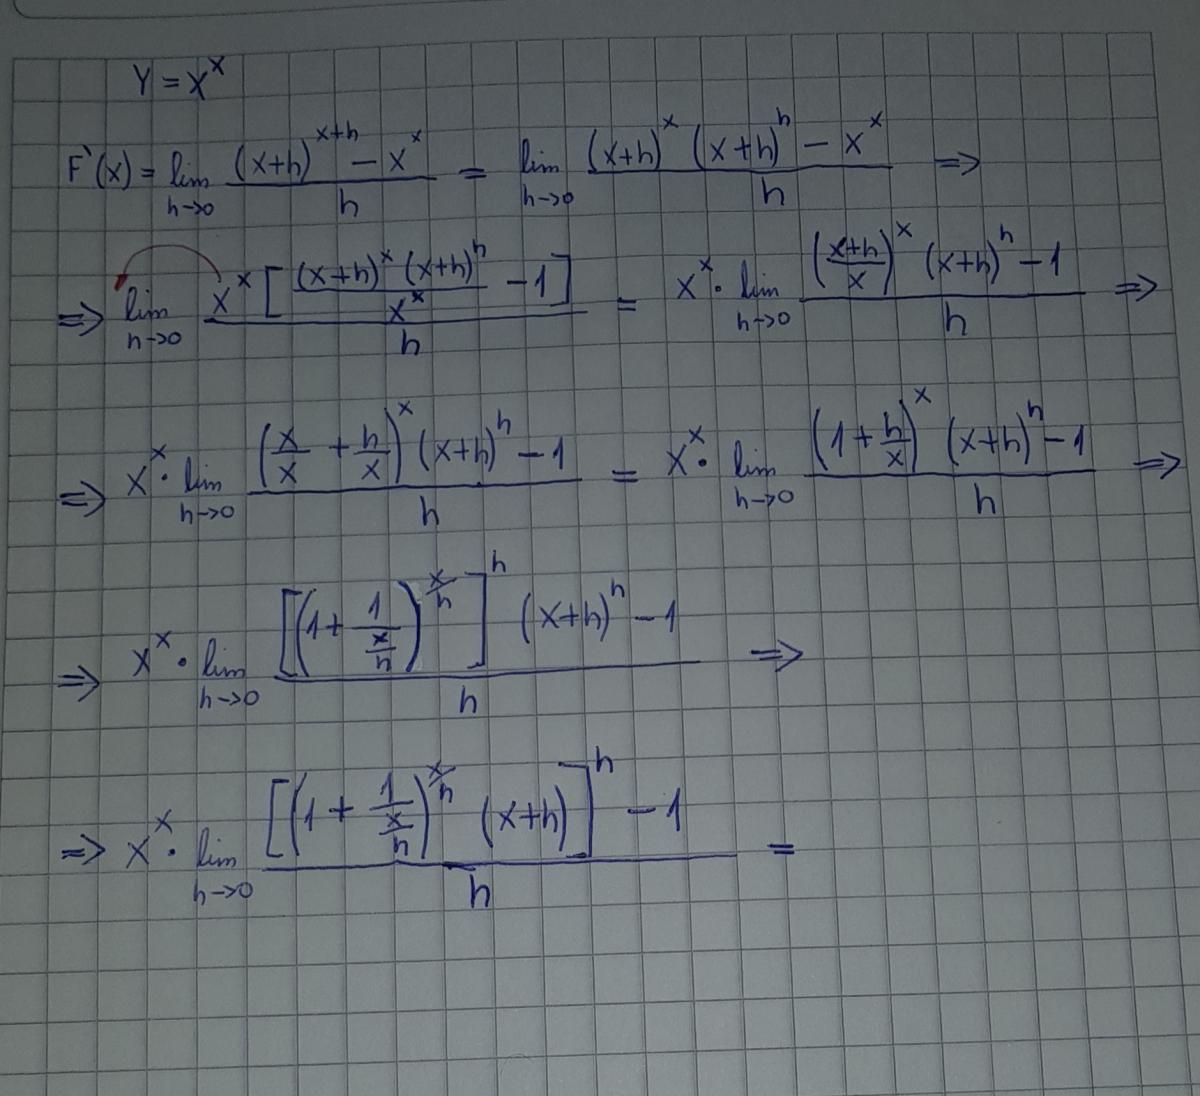 Y = x^x
F'(x) = lim_{h→0} ((x+h)^{x+h} - x^x)/h = lim_{h→0} ((x+h)^x (x+h)^h - x^x)/h ⇒
⇒ lim_{h→0} (x^x [((x+h)^x (x+h)^h)/x^x - 1])/h = x^x · lim_{h→0} (((x+h)/x)^x (x+h)^h - 1)/h ⇒
⇒ x^x · lim_{h→0} ((x/x + h/x)^x (x+h)^h - 1)/h = x^x · lim_{h→0} ((1 + h/x)^x (x+h)^h - 1)/h ⇒
⇒ x^x · lim_{h→0} ([(1 + 1/(x/h))^{x/h}]^h (x+h)^h - 1)/h ⇒
⇒ x^x · lim_{h→0} ([(1 + 1/(x/h))^{x/h} (x+h)]^h - 1)/h =